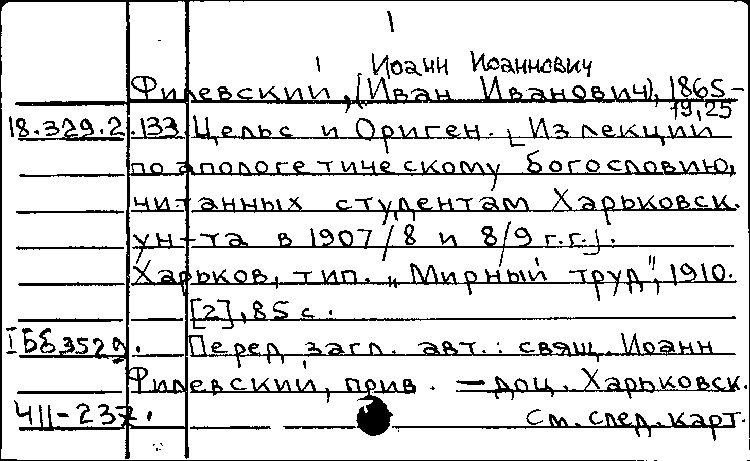 I
Иоанн Иоаннович
Филевский, (Иван Иванович), 1865-
19,25
18.329.2.133. Цельс и Ориген. [Из лекции
по апологетическому богословию,
читанных студентам Харьковск.
ун-та в 1907/8 и 8/9 г.г.].
Харьков, тип. „Мирный труд", 1910.
[2], 85 с.
IББ3529. Перед загл. авт.: свящ. Иоанн
Филевский, прив. - доц. Харьковск.
411-237. См. след. карт.